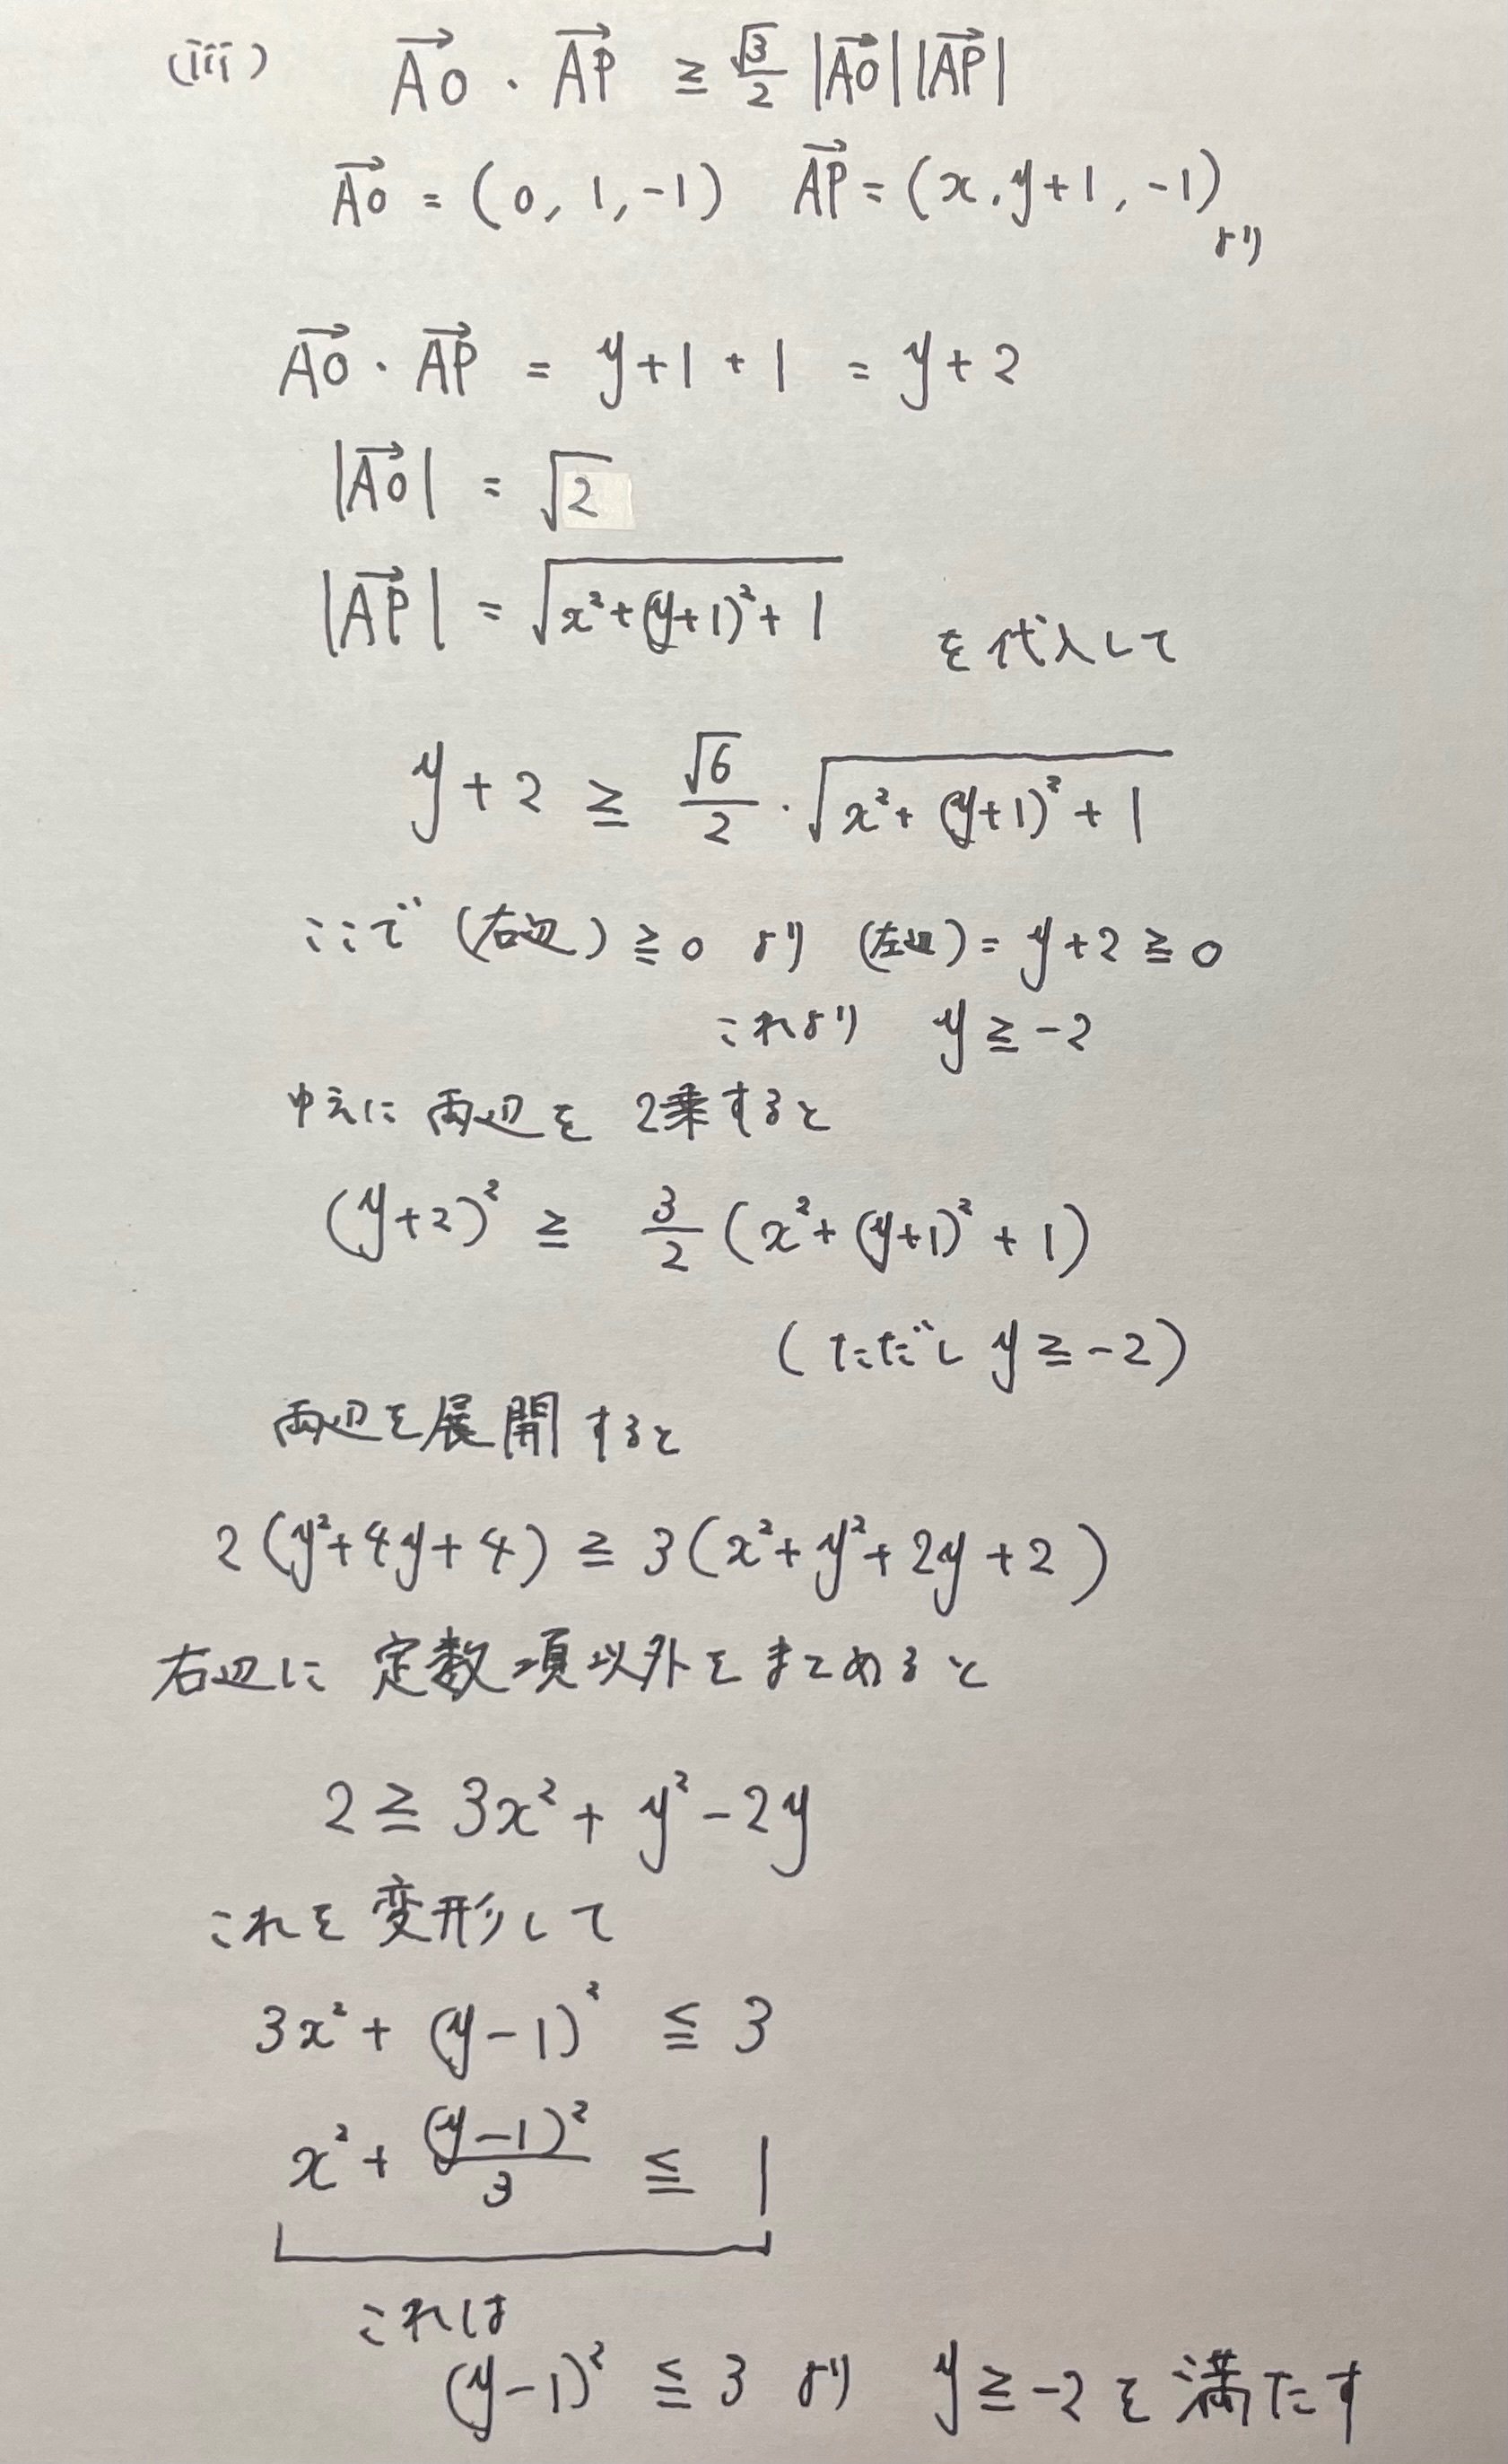 (iii) $\overrightarrow{AO} \cdot \overrightarrow{AP} \geqq \frac{\sqrt{3}}{2} |\overrightarrow{AO}||\overrightarrow{AP}|$
$\overrightarrow{AO} = (0, 1, -1)$ $\overrightarrow{AP} = (x, y+1, -1)$ より
$\overrightarrow{AO} \cdot \overrightarrow{AP} = y+1+1 = y+2$
$|\overrightarrow{AO}| = \sqrt{2}$
$|\overrightarrow{AP}| = \sqrt{x^2+(y+1)^2+1}$ を代入して
$y+2 \geqq \frac{\sqrt{6}}{2} \cdot \sqrt{x^2+(y+1)^2+1}$
ここで (右辺) ≧ 0 より (左辺) = y+2 ≧ 0
これより y ≧ -2
ゆえに 両辺を 2乗すると
$(y+2)^2 \geqq \frac{3}{2}(x^2+(y+1)^2+1)$
(ただし y ≧ -2)
両辺を展開すると
$2(y^2+4y+4) \geqq 3(x^2+y^2+2y+2)$
右辺に 定数項以外をまとめると
$2 \geqq 3x^2+y^2-2y$
これを変形して
$3x^2+(y-1)^2 \leqq 3$
$x^2+\frac{(y-1)^2}{3} \leqq 1$
これは
$(y-1)^2 \leqq 3$ より y ≧ -2 を満たす